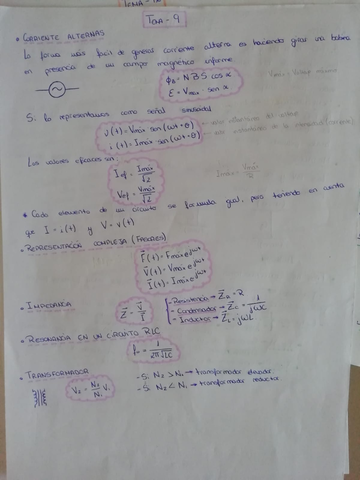 TEMA - 9
• CORRIENTE ALTERNAS
La forma más facil de general corriente alterna es haciendo girar una bobina
en presencia de un campo magnetico uniforme
ϕB = N B S cos α
ε = Vmáx sen α
Si lo representamos como señal sinusoidal
v(t) = Vmáx sen(ωt + θ)
i(t) = Imáx sen(ωt + θ)
Los valores eficaces son:
Ief = Imáx/√2
Vef = Vmáx/√2
* Cada elemento de un circuito se formula igual, pero teniendo en cuenta
que I = i(t) y V = v(t)
• REPRESENTACIÓN COMPLEJA (FASORES)
F(t) = Fmáx e^jωt
V(t) = Vmáx e^jωt
I(t) = Imáx e^jωt
• IMPEDANCIA
Z = V/I
- Resistencia → ZR = R
- Condensador → ZC = 1/jωC
- Inductor → ZL = jωL
• RESONANCIA EN UN CIRCUITO RLC
= 1/2π√LC
• TRANSFORMADOR
V2 = N2/N1 V1
- Si N2 > N1 → transformador elevador
- Si N2 < N1 → transformador reductor